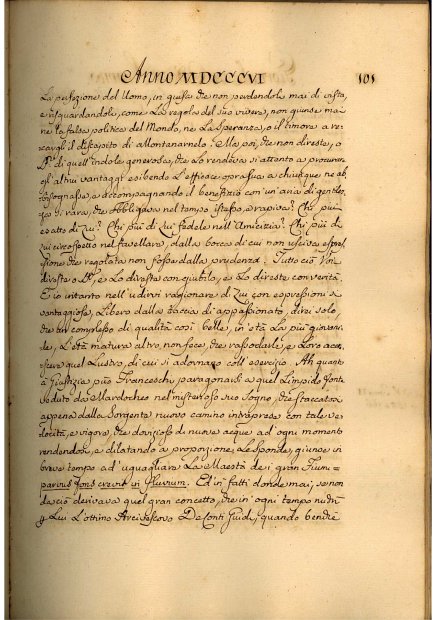 Anno MDCCCVI 101
La perfezione del Uomo, in guisa che non perdendola mai di vista,
e risguardandola, come La regola del suo vivere, non giunse mai
ne la falsa politica del Mondo, ne La Speranza, o il timore a re-
cargli il discapito di allontanarnelo. Ma poi, che non direste, o
di quell'indole generosa, che Lo rendeva si attento a procurar
gl'altrui vantaggi esibendo L'efficace opra sua a chiunque ne ab-
bisognasse, e accompagnando il benefizio con un'aria di gentilez-
za si rara, che obbligava nel tempo istesso, e rapiva? Chi più
esatto di Lui? Chi più di Lui fedele nell'Amicizia? Chi più di
Lui circospetto nel favellare, dalla bocca di cui non usciva espres-
sione che regolata non fosse dalla prudenza. Tutto ciò Voi
direste o e Lo direste con giubilo, e Lo direste con verità.
E io intanto nell'udirvi ragionare di Lui con espressioni si
vantaggiose, Libero dalla taccia di appassionato, direi solo,
che un complesso di qualità così belle, in età La più giovani-
le, L'età matura altro non fece, che rassodarle, e Loro accre-
scere quel Lustro, di cui si adornano coll'esercizio. Ah quant
a Giustizia può Franceschi paragonarsi a quel Limpido fonte
veduto da Mardocheo nel misterioso suo Sogno, che staccatosi
appena dalla Sorgente nuovo camino intraprese con tale ve-
locità, e vigore, che dovizioso di nuove acque ad ogni momento
rendendosi, e dilatando a proporzione Le Sponde, giunse in
breve tempo ad uguagliare La Maestà de i gran Fiumi =
parvus fons crevit in fluvium. Ed in fatti donde mai, se non
da ciò derivava quel gran concetto, che in ogni tempo nudrì
Lui L'ottimo Arcivescovo De Conti Guidi, quando benchè